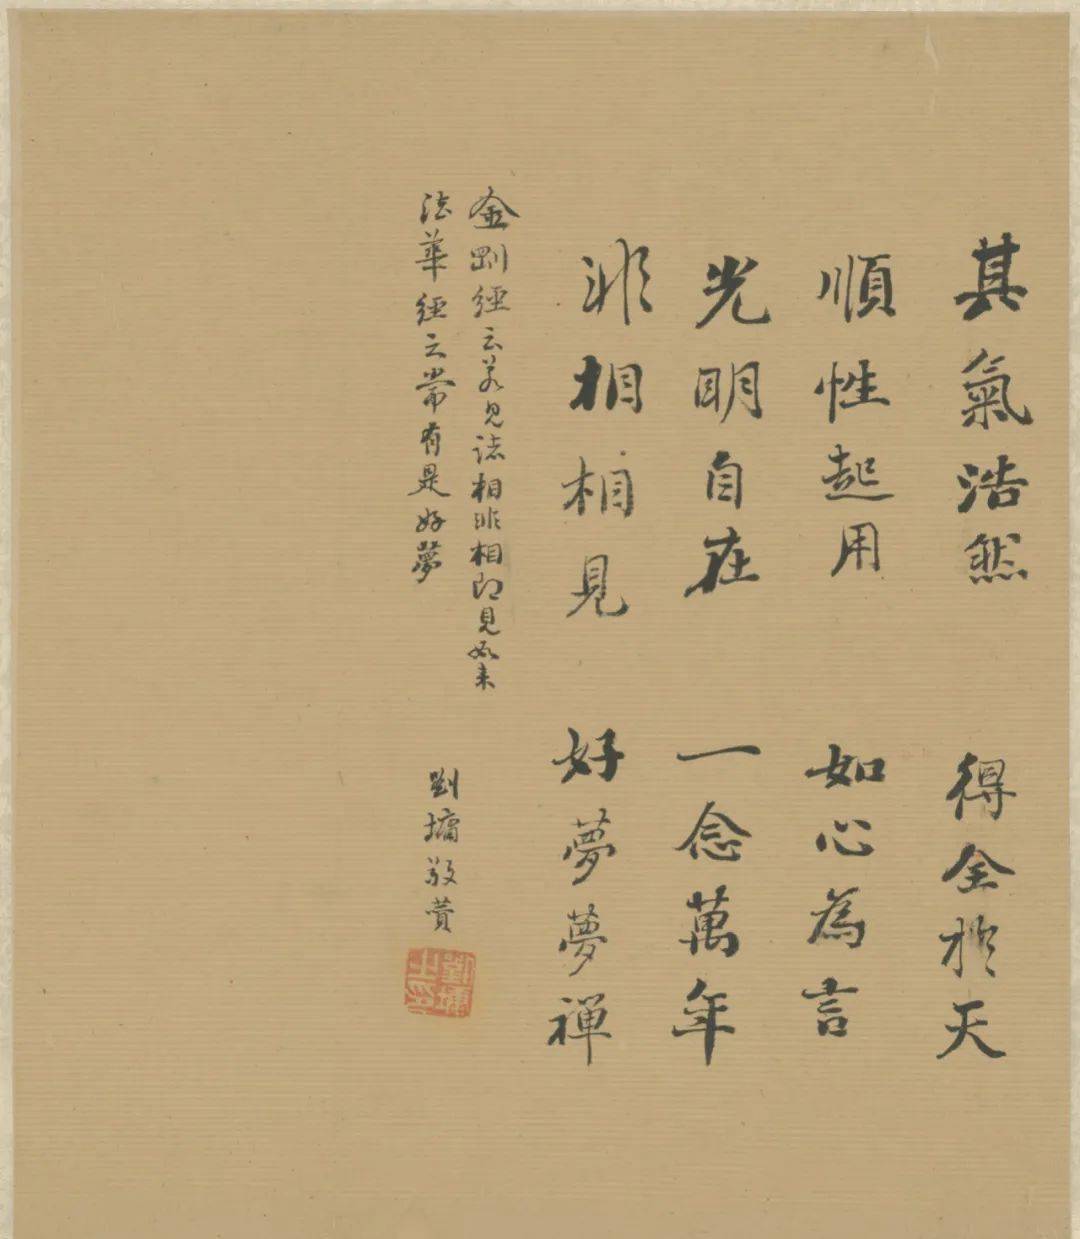 其氣浩然　得全於天
順性起用　如心為言
光明自在　一念萬年
非相相見　好夢夢禪
金剛經云若見諸相非相即見如来
法華經云常有是好夢
劉墉敬贊
劉墉之印